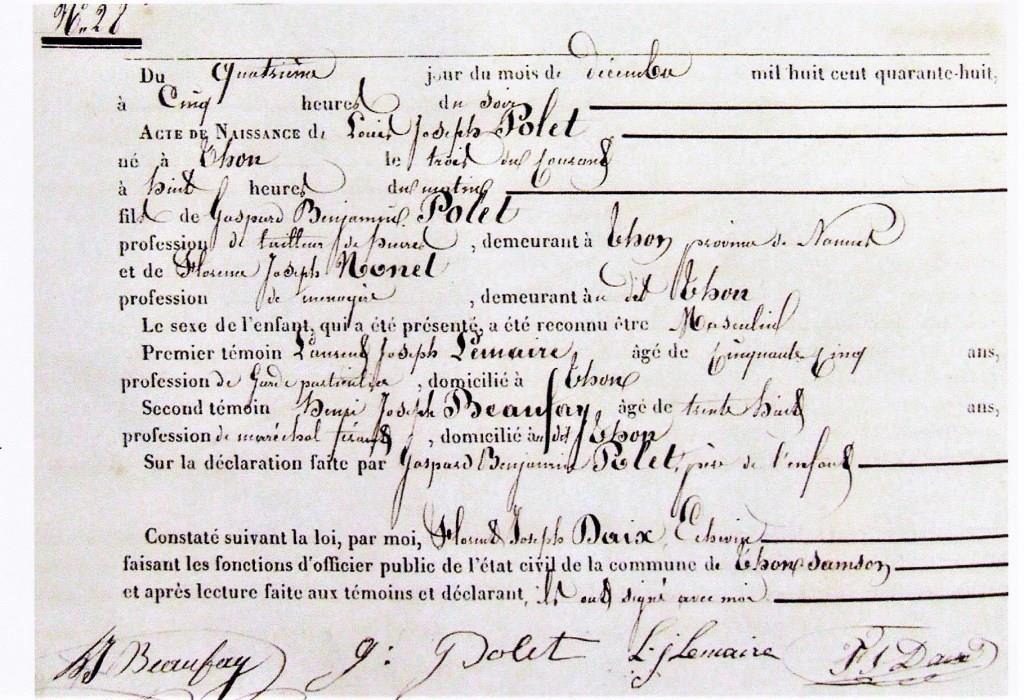 N°. 28
Du quatrième jour du mois de décembre mil huit cent quarante-huit,
à Cinq heures du soir
ACTE DE NAISSANCE de Louis Joseph Polet
né à Thon le trois du courant
à huit heures du matin
fils de Gaspard Benjamin Polet
profession de tailleur de pierres, demeurant à Thon province de Namur
et de Florence Joseph Nonet
profession de menagère, demeurant à u dit Thon
Le sexe de l'enfant, qui a été présenté, a été reconnu être Masculin
Premier témoin Laurent Joseph Lemaire, âgé de Cinquante Cinq ans,
profession de Garde particulier, domicilié à Thon
Second témoin Henri Joseph Beaufay, âgé de trente huit ans,
profession de maréchal ferant, domicilié à u dit Thon
Sur la déclaration faite par Gaspard Benjamin Polet, père de l'enfant
Constaté suivant la loi, par moi, Florent Joseph Daix, Echevin
faisant les fonctions d'officier public de l'état civil de la commune de Thon Samson
et après lecture faite aux témoins et déclarant, ils ont signé avec moi
Beaufay g: Polet L. j Lemaire F. J. Daix